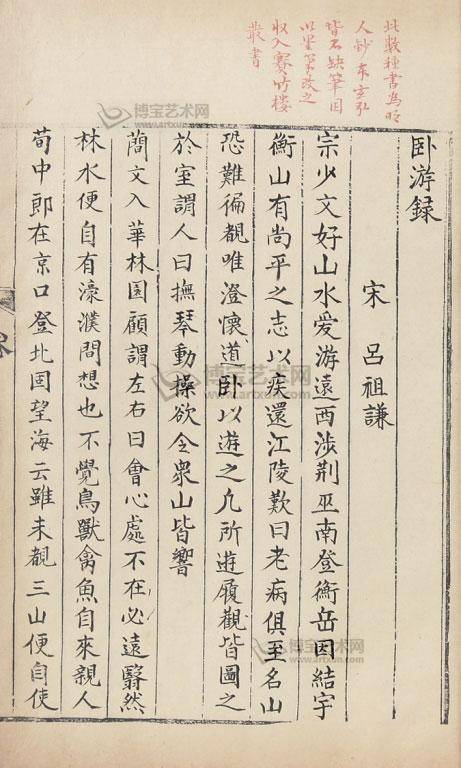 此數種書為明
人鈔本玄弘
皆不缺筆因
以墨筆改之
收入賽竹樓
叢書
卧游録
宋 呂祖謙
宗少文好山水爱游遠西涉荆巫南登衡岳因結宇
衡山有尚平之志以疾還江陵歎曰老病俱至名山
恐難徧覩唯澄懷道卧以遊之凡所遊履觀皆圖之
於室謂人曰撫琴動操欲令衆山皆響
簡文入華林園顧謂左右曰會心處不在必遠翳然
林水便自有濠濮間想也不覺鳥獸禽魚自來親人
荀中郎在京口登北固望海云雖未覩三山便自使
博宝艺术网
www.artxun.com
博宝艺术网
www.artxun.com
博宝艺术网
www.artxun.com